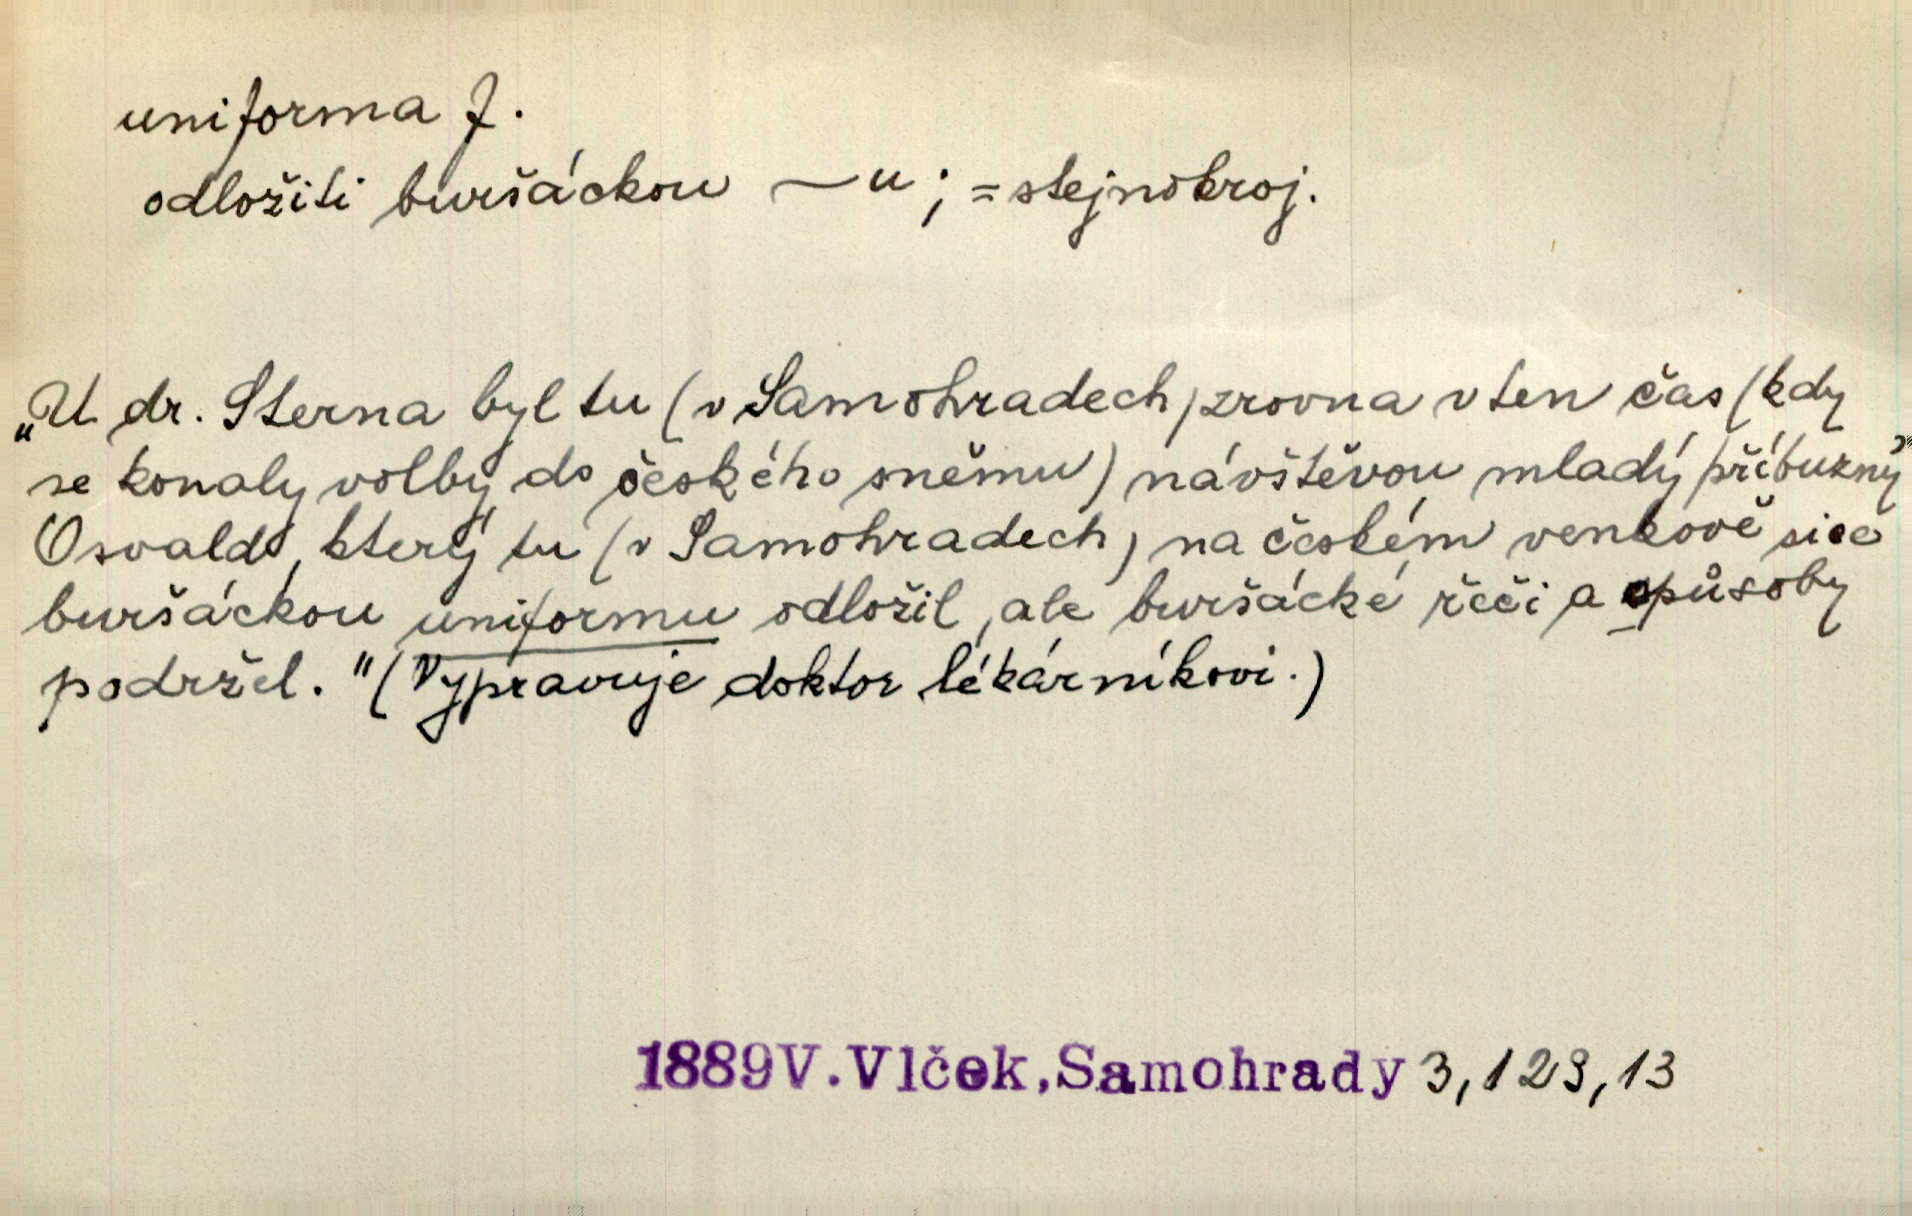 uniforma f.
odložiti buršáckou —u; = stejnokroj.
„U dr. Sterna byl tu (v Samohradech) zrovna v ten čas (kdy
se konaly volby do českého sněmu) návštěvou mladý příbuzný
Osvald, který tu (v Samohradech) na českém venkově sice
buršáckou uniformu odložil, ale buršácké řeči a spůsoby
podržel." (Vypravuje doktor lékárníkovi.)
1889 V. Vlček, Samohrady 3, 129, 13